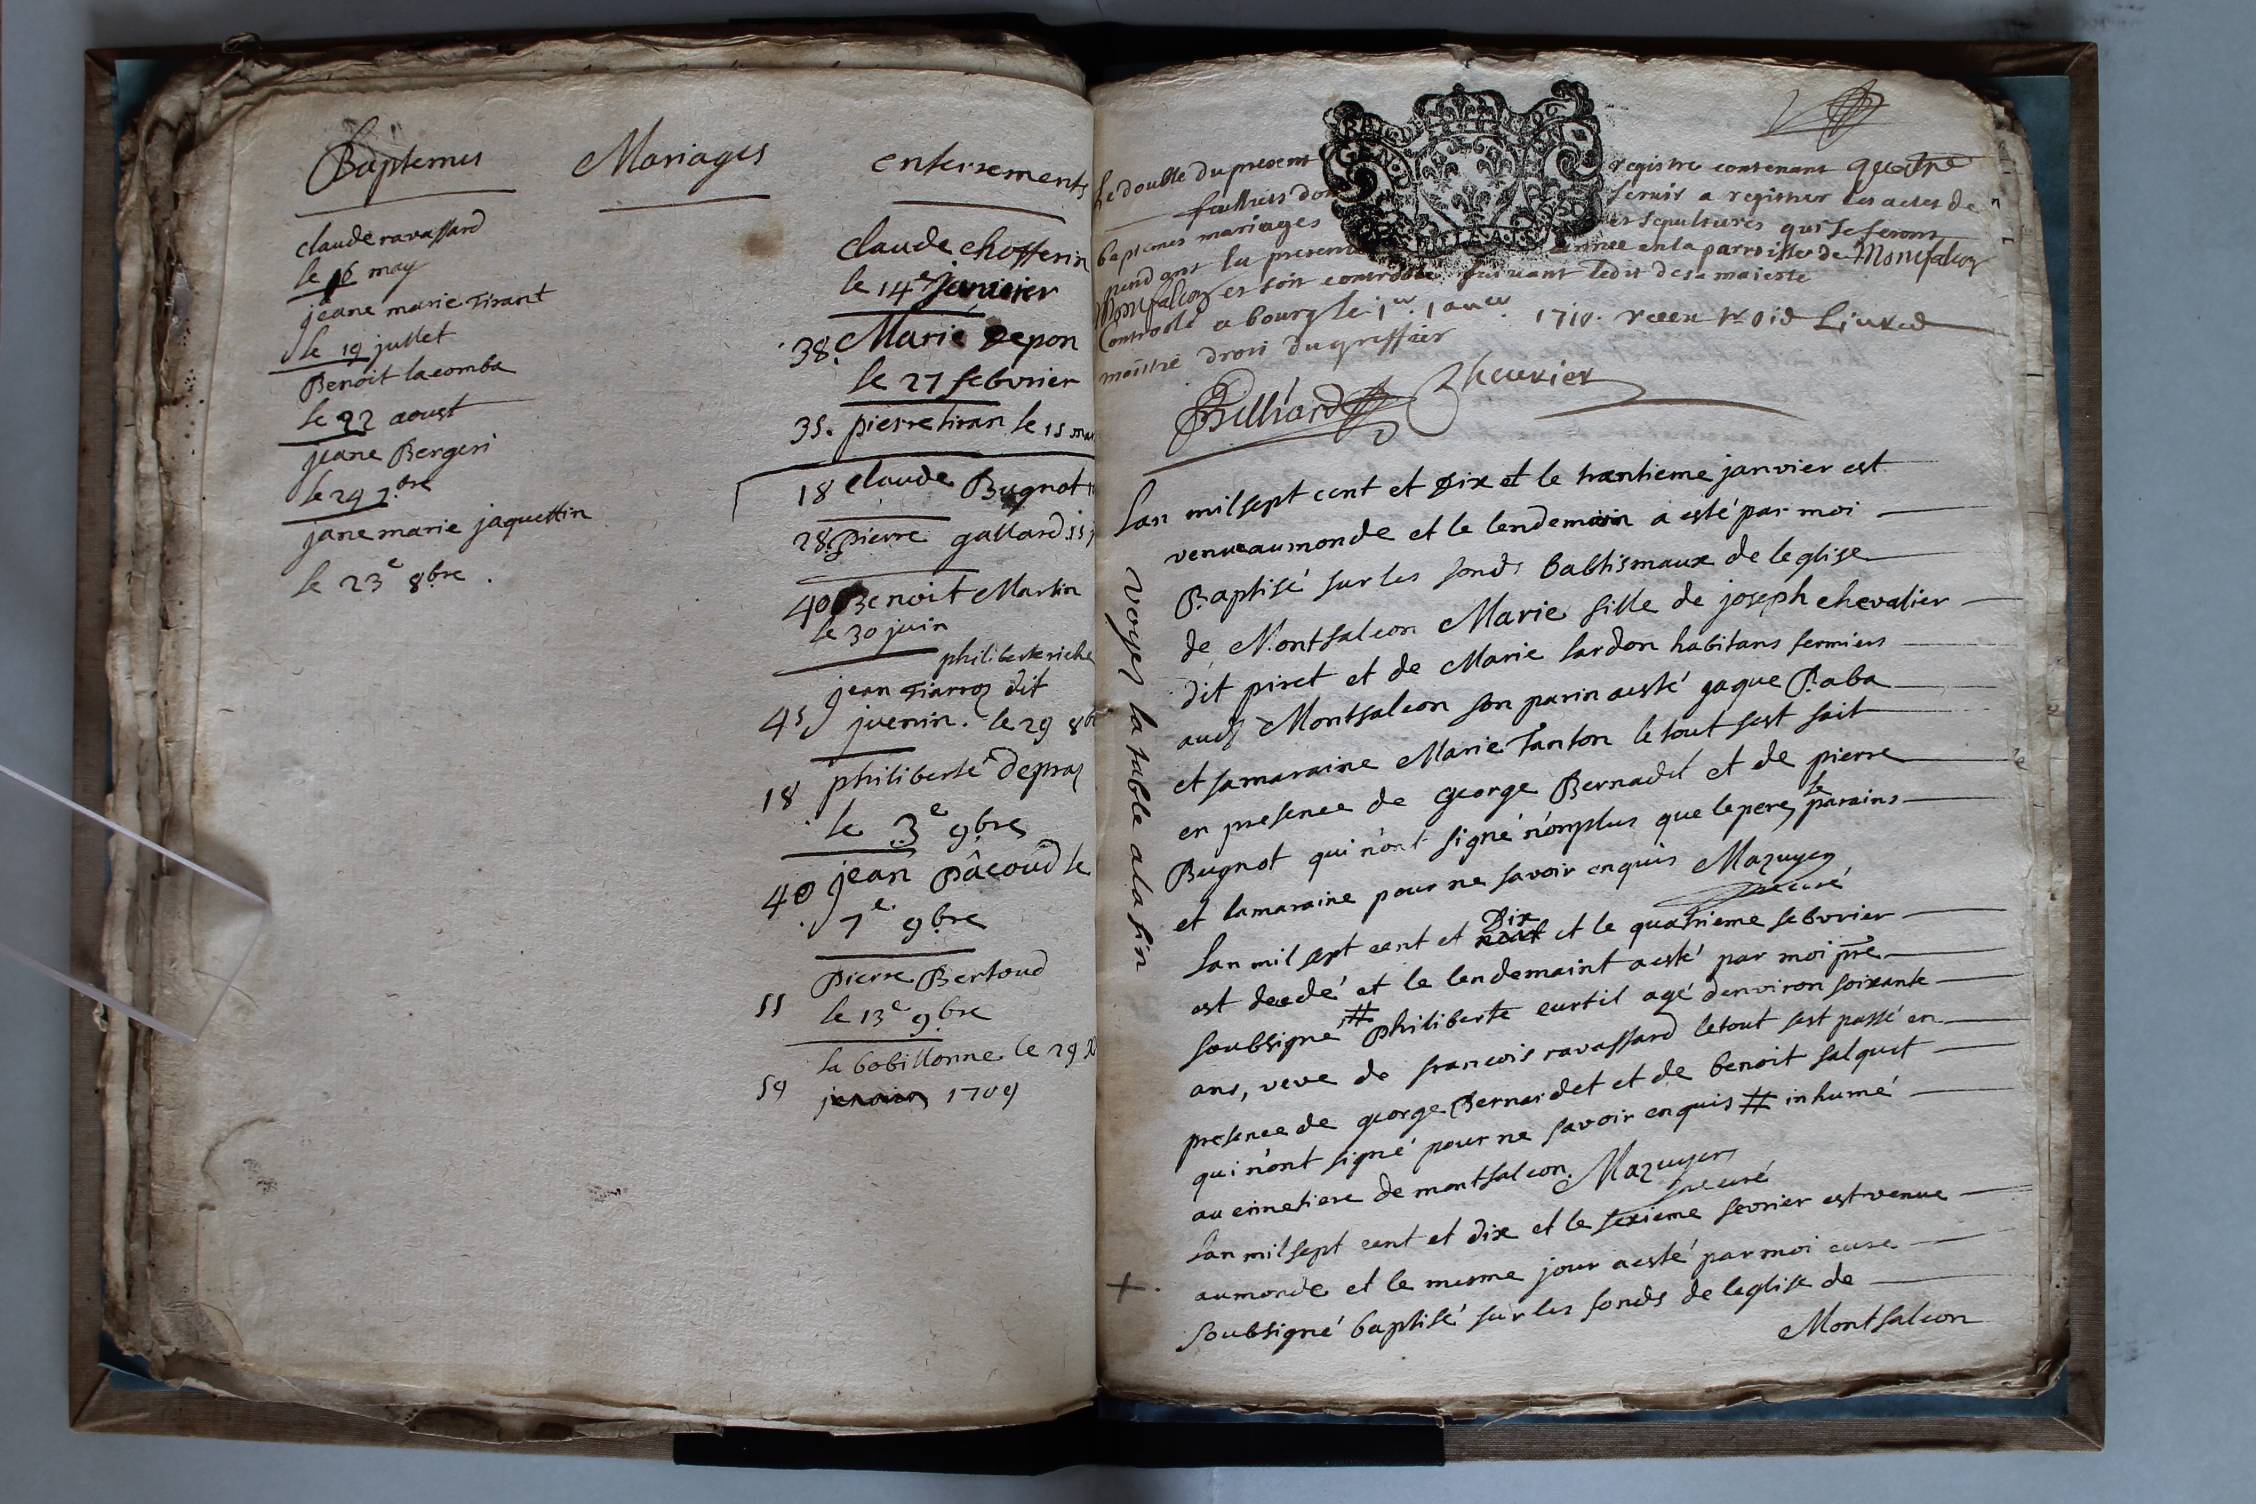 Baptemes
claude ravassard
le 16 may
jeane marie Tirant
le 19 jullet
Benoit lacomba
le 22 aoust
jeane Bergeri
le 29 7.bre
jane marie jaquettin
le 23e 8bre .
Mariages
enterrements
claude chosserin
le 14e janvier
38. Marie Depon
le 27 febvrier
35. pierre tiran le 15 mar
18 claude Bugnot
28. pierre gallard 15
40 Benoit Martin
le 30 juin
philiberte riche
jean Tiarroz dit
45 juenin. le 29 8b
18 philiberte depraz
le 3e 9bre
40 jean Pâcoud le
7e. 9bre
Pierre Bertoud
55 le 13e 9.bre
la bobillonne le 29
59 janvier 1709
Le double du present registre contenant quatre
feullies don servir a registrer les actes de
baptemes mariages et sepultures qui se feront
pendant la presente année en la parroisse de Montfalcon
Montfalcon et soit controollé suivant ledit de sa majesté
Controolé a bourg le 1er. Janer. 1710. receu Livres
droit du greffier
Billiard Cheurier
voyez la table a la fin
Lan mil sept cent et Dix et le trentieme janvier est
venue au monde et le lendemain a esté par moi
Baptisé sur les fonds babtismaux de leglise
de Montfalcon Marie fille de joseph chevalier
dit piret et de Marie lardon habitans fermiers
aud Montfalcon son parin a esté jaque Raba
et sa maraine Marie Tanton le tout sest fait
en presence de george Bernadet et de pierre
Bugnot qui n'ont signé nonplus que le pere, le parains
et la maraine pour ne savoir enquis Mazuyer
curé
Lan mil sept cent et neuf Dix et le quatrieme febvrier
est decedé et le lendemaint a esté par moi pre
soubsigné # philiberte curtil agé denviron soixante
ans, veve de francois ravassard le tout sest passé en
presence de george Bernardet et de benoit salquet
qui n'ont signé pour ne savoir enquis # inhumé
au cimetiere de montfalcon. Mazuyer
curé
+. Lan mil sept cent et dix et le sexieme fevrier est venue
au monde et le mesme jour a esté par moi cure
soubsigné baptisé sur les fonds de leglise de
Montfalcon